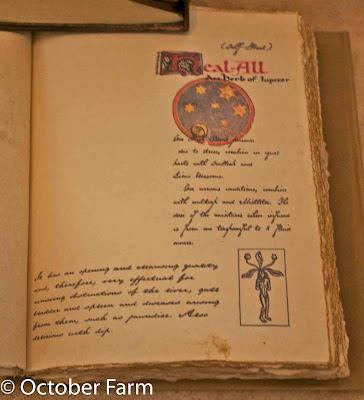 (Self-Heal)
Heal-All
An Herb of Jupiter
For High Blood pressure
due to stress, combine in equal
parts with Scullcap and
Lime blossoms.
For nervous conditions, combine
with scullcap and Mistletoe. The
dose of the mixture when infused
is from one teaspoonful to 2 fluid
ounces.
It has an opening and cleansing quality
and, therefore, very effectual for
removing obstructions of the liver, gall
bladder and spleen and diseases arising
from them, such as jaundice. Also
decisions with dip.
© October Farm